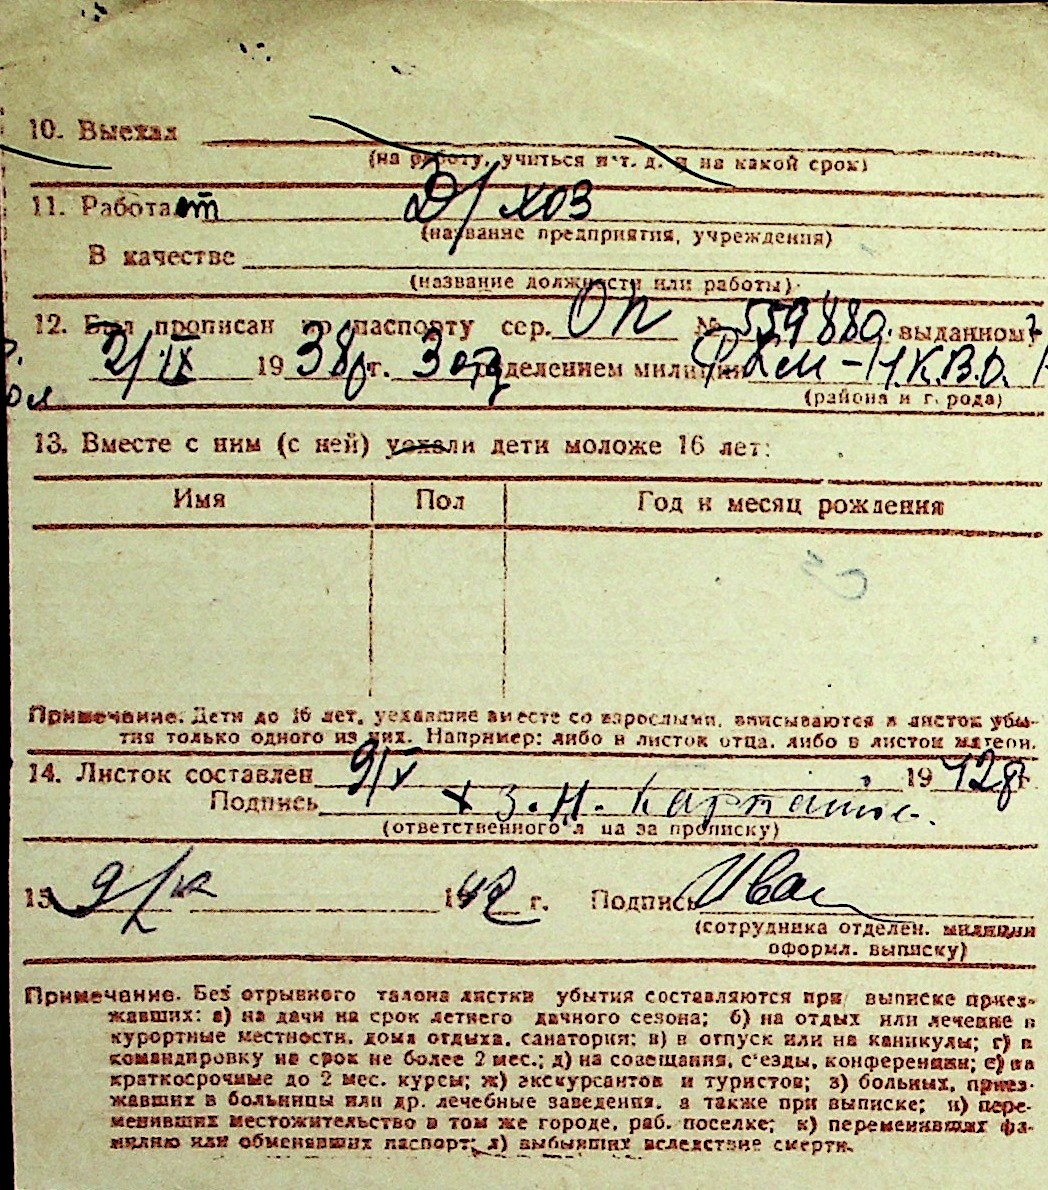 10. Выехал
(на работу, учиться и т. д. и на какой срок)
11. Работает Д/хоз
(название предприятия, учреждения)
В качестве
(название должности или работы)
12. Был прописан по паспорту сер. ОП № 559880 выданному
2/IX 1938 г. 3 отделением милиции
(района и города)
13. Вместе с ним (с ней) уехали дети моложе 16 лет:
Имя Пол Год и месяц рождения
Примечание. Дети до 16 лет, уехавшие вместе со взрослыми, вписываются в листок убы-
тия только одного из них. Например: либо в листок отца, либо в листок матери.
14. Листок составлен 9/V 1942 г.
Подпись
(ответственного лица за прописку)
15 1942 г. Подпись
(сотрудника отделен. милиции
оформл. выписку)
Примечание. Без отрывного талона листки убытия составляются при выписке приез-
жавших: а) на дачи на срок летнего дачного сезона; б) на отдых или лечение в
курортные местности, дома отдыха, санатории; в) в отпуск или на каникулы; г) в
командировку на срок не более 2 мес.; д) на совещания, с'езды, конференции; е) на
краткосрочные до 2 мес. курсы; ж) экскурсантов и туристов; з) больных, приез-
жавших в больницы или др. лечебные заведения, а также при выписке; и) пере-
менивших местожительство в том же городе, раб. поселке; к) переменивших фа-
милию или обменявших паспорт; л) выбывших вследствие смерти.